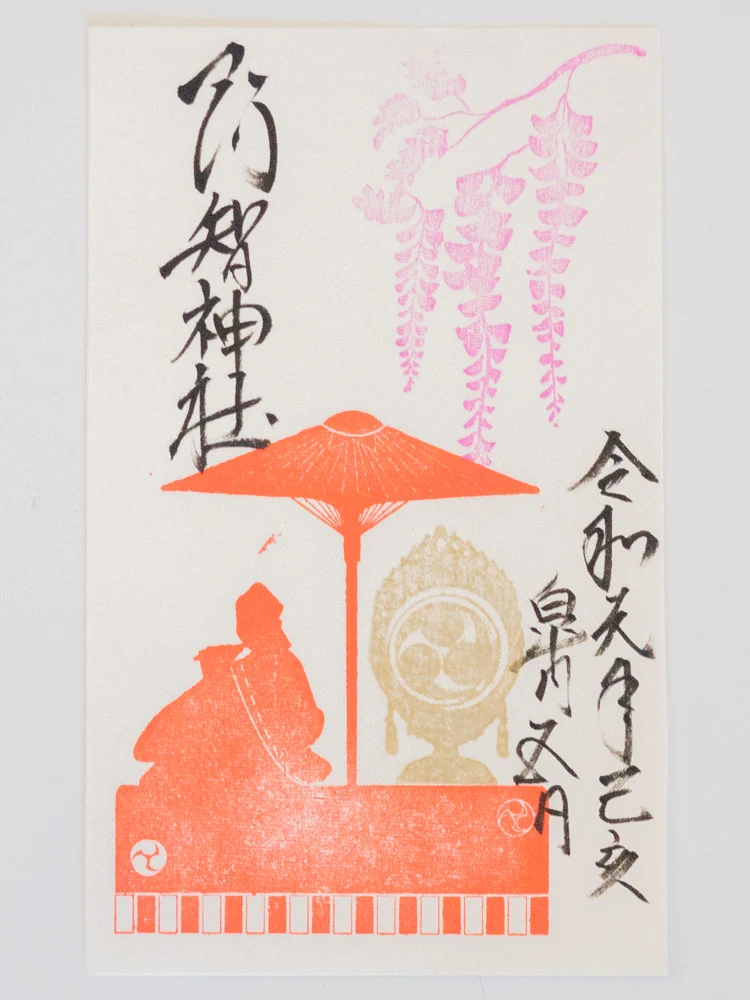 令和元年己亥
皐月五月
阿智神社